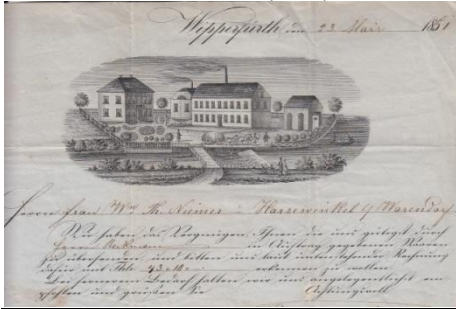 Wipperfürth den 23 Mai 1851
Herrn Frau Ww Th. Niemer Harsewinkel b/ Warendorf
Wir haben das Vergnügen Ihnen die uns gütigst durch
Herrn in Auftrag gegebenen Waaren
zu übersenden, und bitten uns laut untenstehender Rechnung
dafür mit Thlr. 43.18. erkennen zu wollen.
Bei fernerem Bedarf halten wir uns angelegentlichst em-
pfohlen und grüßen Sie Achtungsvoll